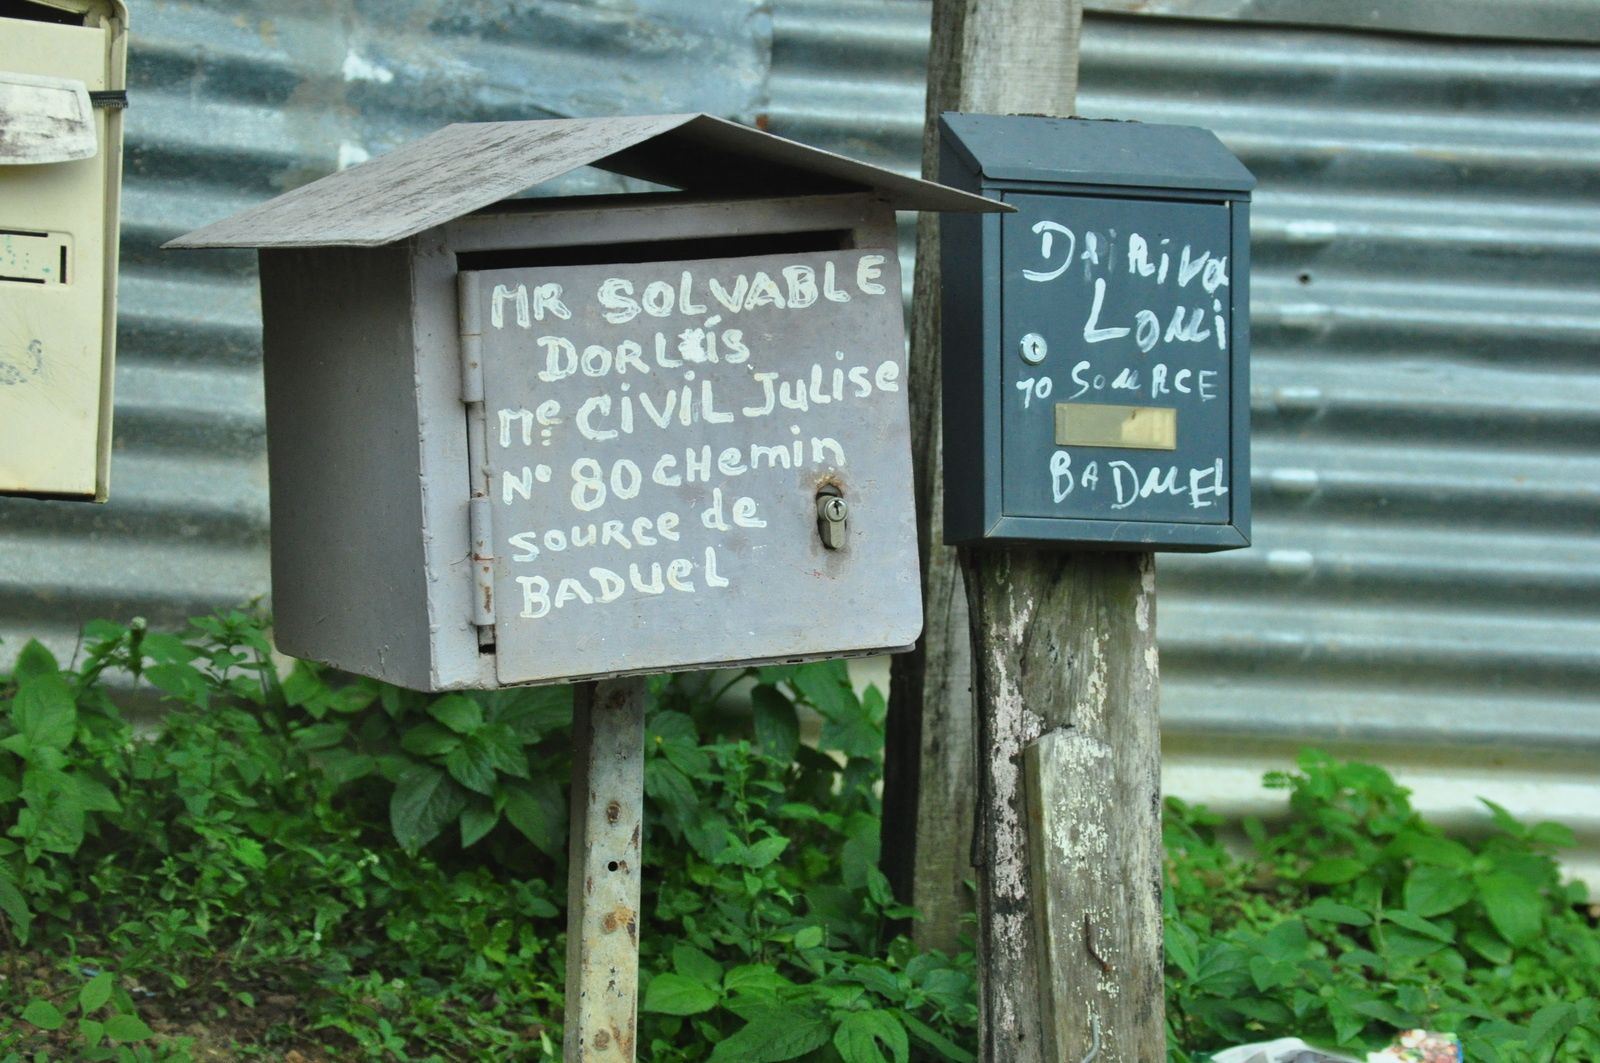 MR SOLVABLE
DORLÍS
Me CiViL JuLise
N° 80 CHemin
source de
BADUeL
LOUi
70 SOURCE
BADUEL